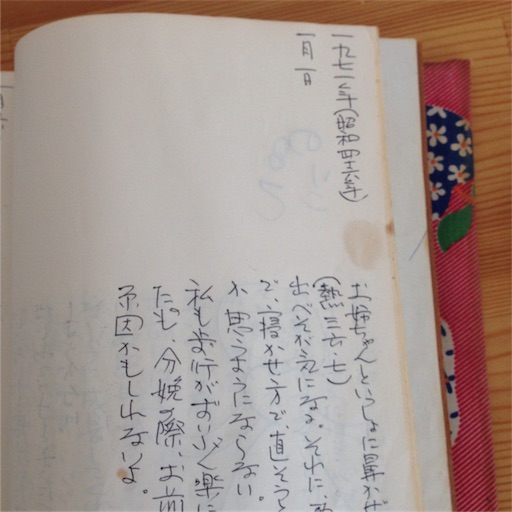 一九七一年(昭和四十六年)
一月一日
お姉ちゃんといっしょに鼻かぜ
(熱三六・七)
出べそが気になる。それに、
で、寝かせ方で、直そうと
か 思うようにならない。
私も歩行がずい分く楽に
たが、分娩の際、お前
原因かもしれないよ。